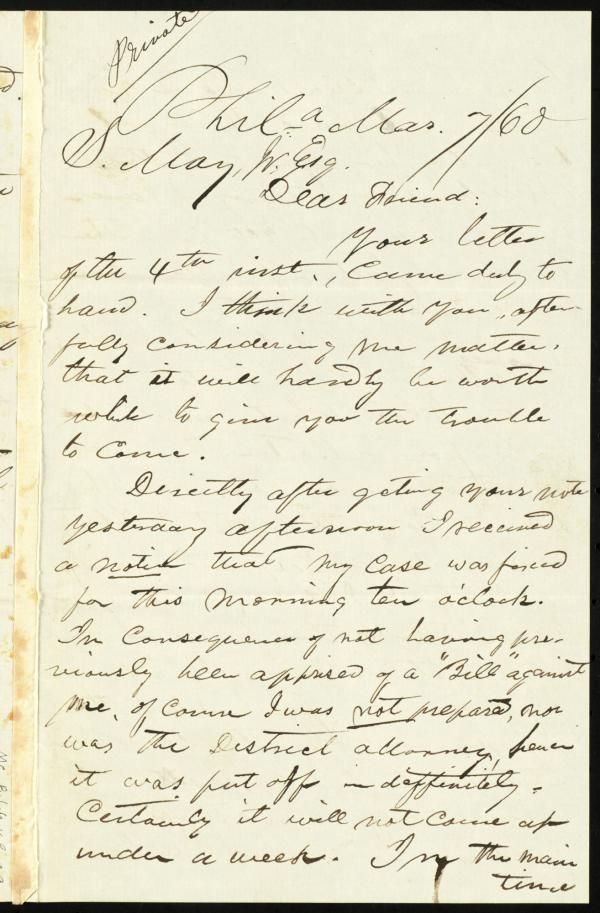 Private
Phila Mar. 7/60
S. May, Jr. Esq.
Dear Friend:
Your letter
of the 4th inst., Came duly to
hand. I think with you, after
fully considering the matter,
that it will hardly be worth
while to give you the trouble
to Come.
Directly after geting your note
yesterday afternoon I received
a notice that my Case was fixed
for this morning ten o'clock.
In Consequence of not having pre-
viously been apprised of a "Bill" against
me, of Course I was not prepared, nor
was the District attorney, hence
it was put off indeffinitely.
Certainly it will not Come up
under a week. In the main
time